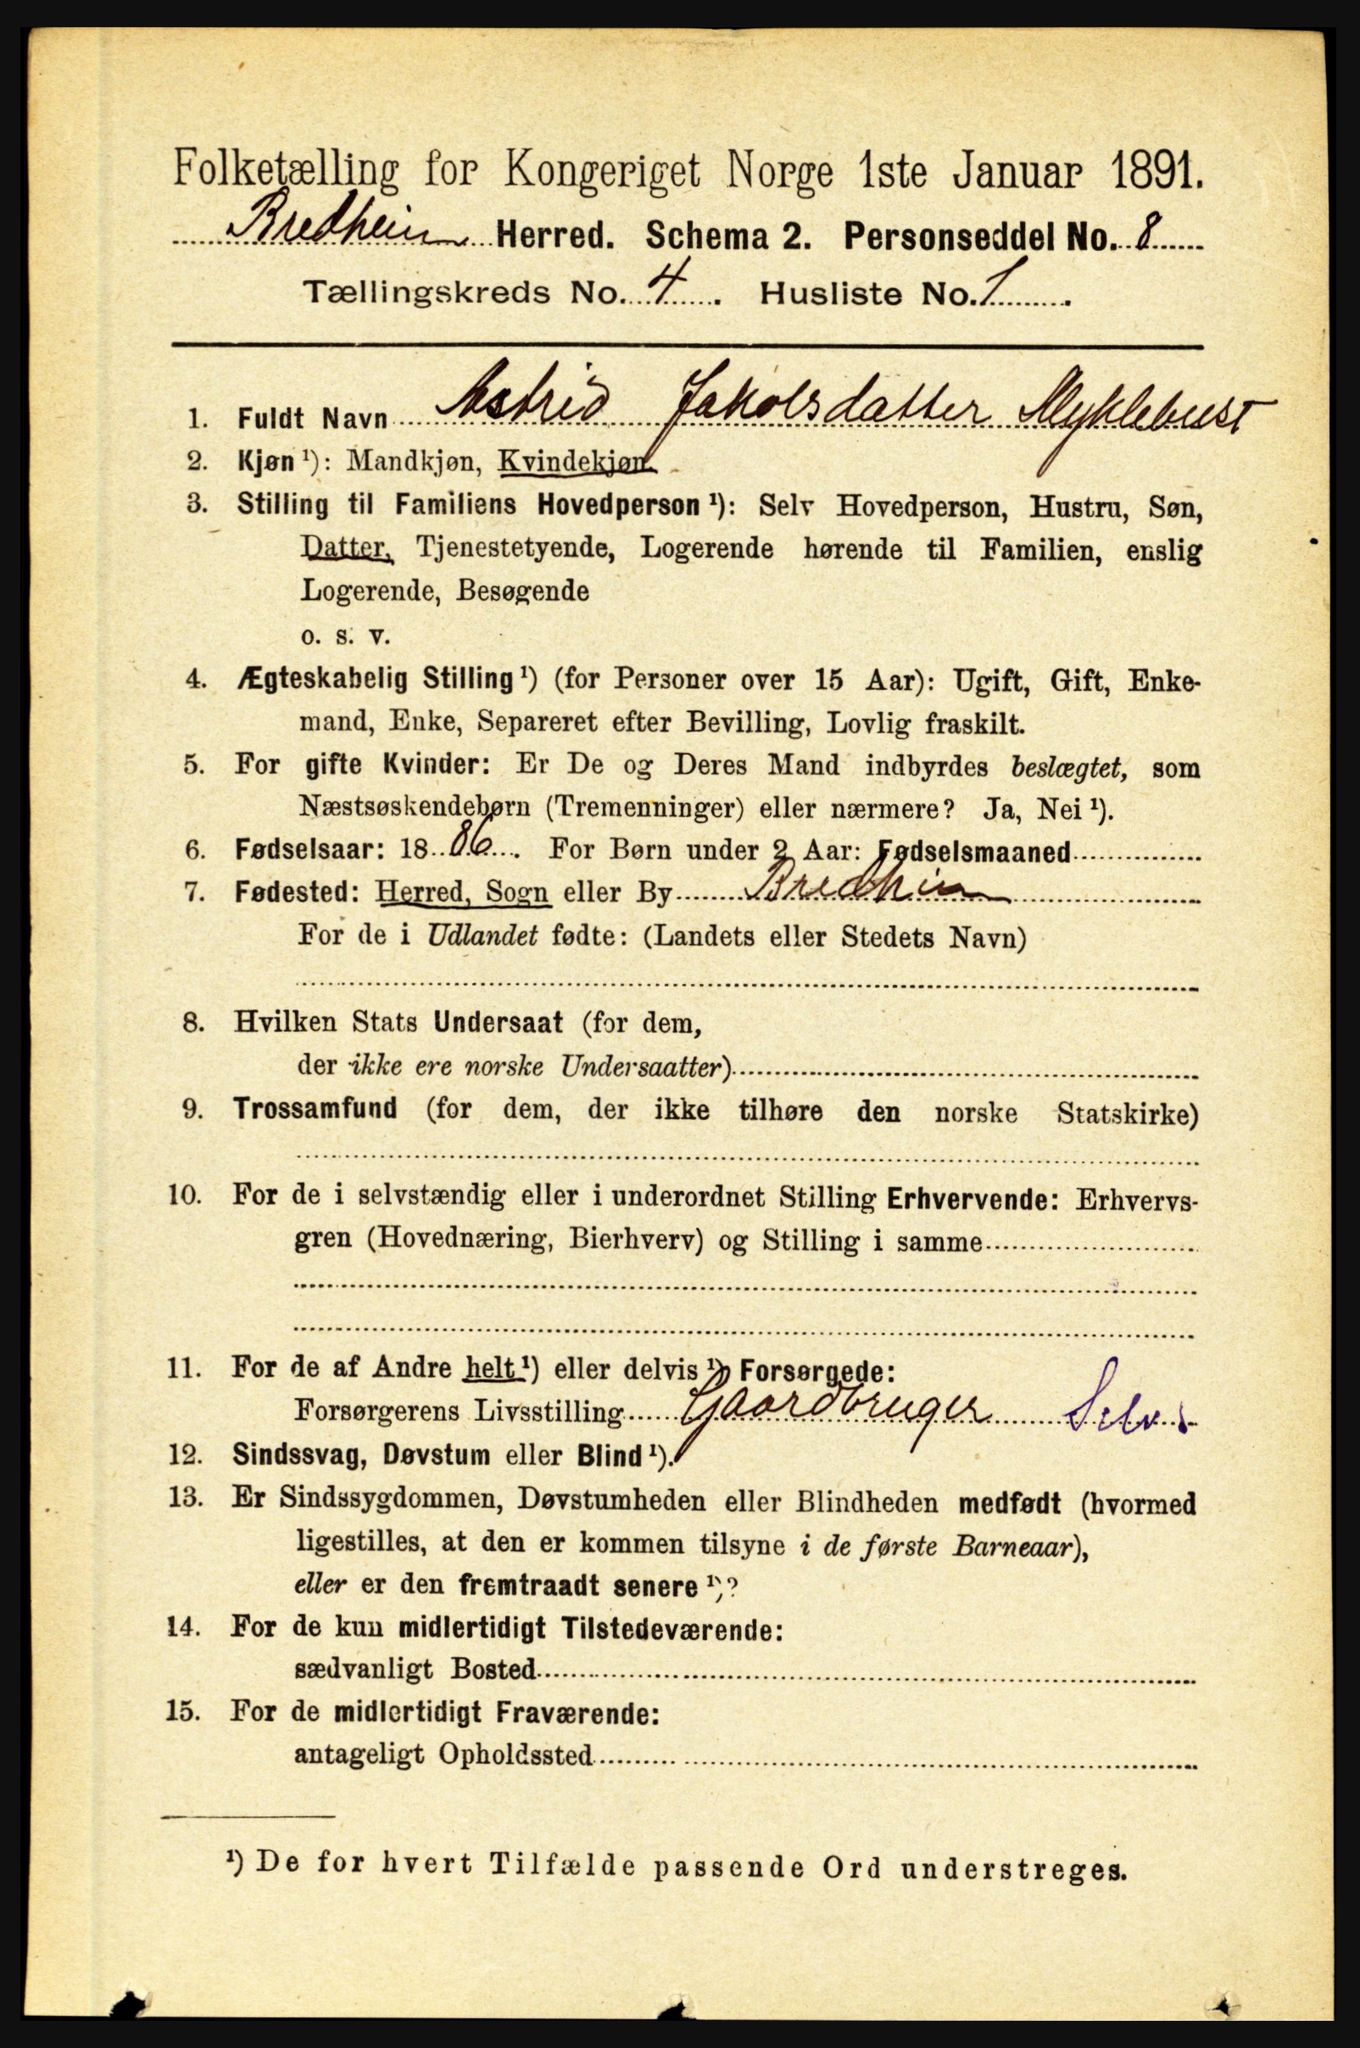 Folketælling for Kongeriget Norge 1ste Januar 1891.
Bredheim Herred. Schema 2. Personseddel No. 8
Tællingskreds No. 4. Husliste No. 1.
1. Fuldt Navn Astrid Jakobsdatter Myklebust
2. Kjøn ¹): Mandkjøn, Kvindekjøn.
3. Stilling til Familiens Hovedperson ¹): Selv Hovedperson, Hustru, Søn,
Datter, Tjenestetyende, Logerende hørende til Familien, enslig
Logerende, Besøgende
o. s. v.
4. Ægteskabelig Stilling ¹) (for Personer over 15 Aar): Ugift, Gift, Enke-
mand, Enke, Separeret efter Bevilling, Lovlig fraskilt.
5. For gifte Kvinder: Er De og Deres Mand indbyrdes beslægtet, som
Næstsøskendebørn (Tremenninger) eller nærmere? Ja, Nei ¹).
6. Fødselsaar: 1886. For Børn under 2 Aar: Fødselsmaaned
7. Fødested: Herred, Sogn eller By Bredheim
For de i Udlandet fødte: (Landets eller Stedets Navn)
8. Hvilken Stats Undersaat (for dem,
der ikke ere norske Undersaatter)
9. Trossamfund (for dem, der ikke tilhøre den norske Statskirke)
10. For de i selvstændig eller i underordnet Stilling Erhvervende: Erhvervs-
gren (Hovednæring, Bierhverv) og Stilling i samme
11. For de af Andre helt ¹) eller delvis ¹) Forsørgede:
Forsørgerens Livsstilling Gaardbruger Selv.
12. Sindssvag, Døvstum eller Blind ¹).
13. Er Sindssygdommen, Døvstumheden eller Blindheden medfødt (hvormed
ligestilles, at den er kommen tilsyne i de første Barneaar),
eller er den fremtraadt senere ¹)?
14. For de kun midlertidigt Tilstedeværende:
sædvanligt Bosted
15. For de midlertidigt Fraværende:
antageligt Opholdssted
¹) De for hvert Tilfælde passende Ord understreges.